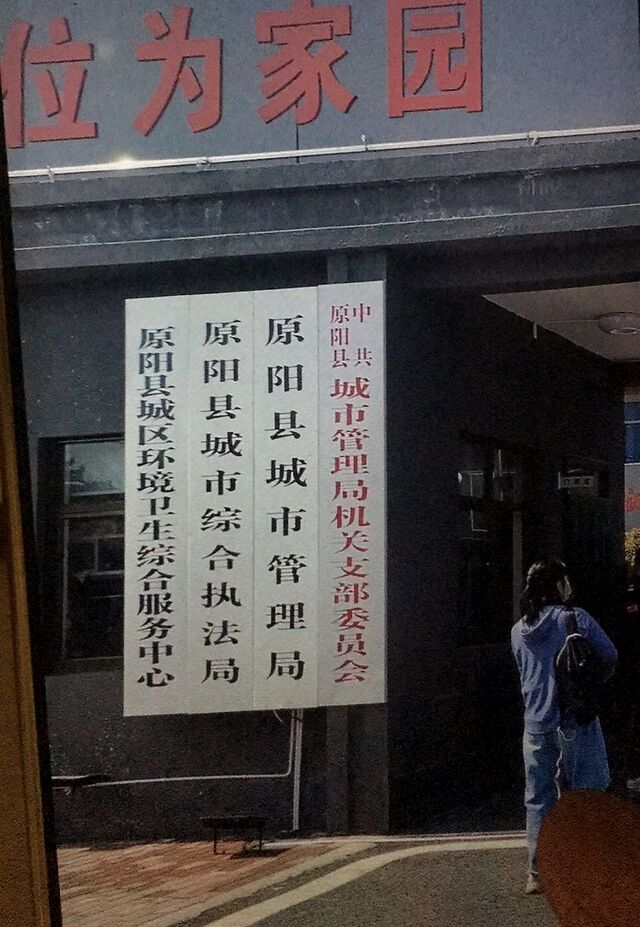 位为家园
中共
原阳县
城市管理局机关支部委员会
原阳县城市管理局
原阳县城市综合执法局
原阳县城区环境卫生综合服务中心